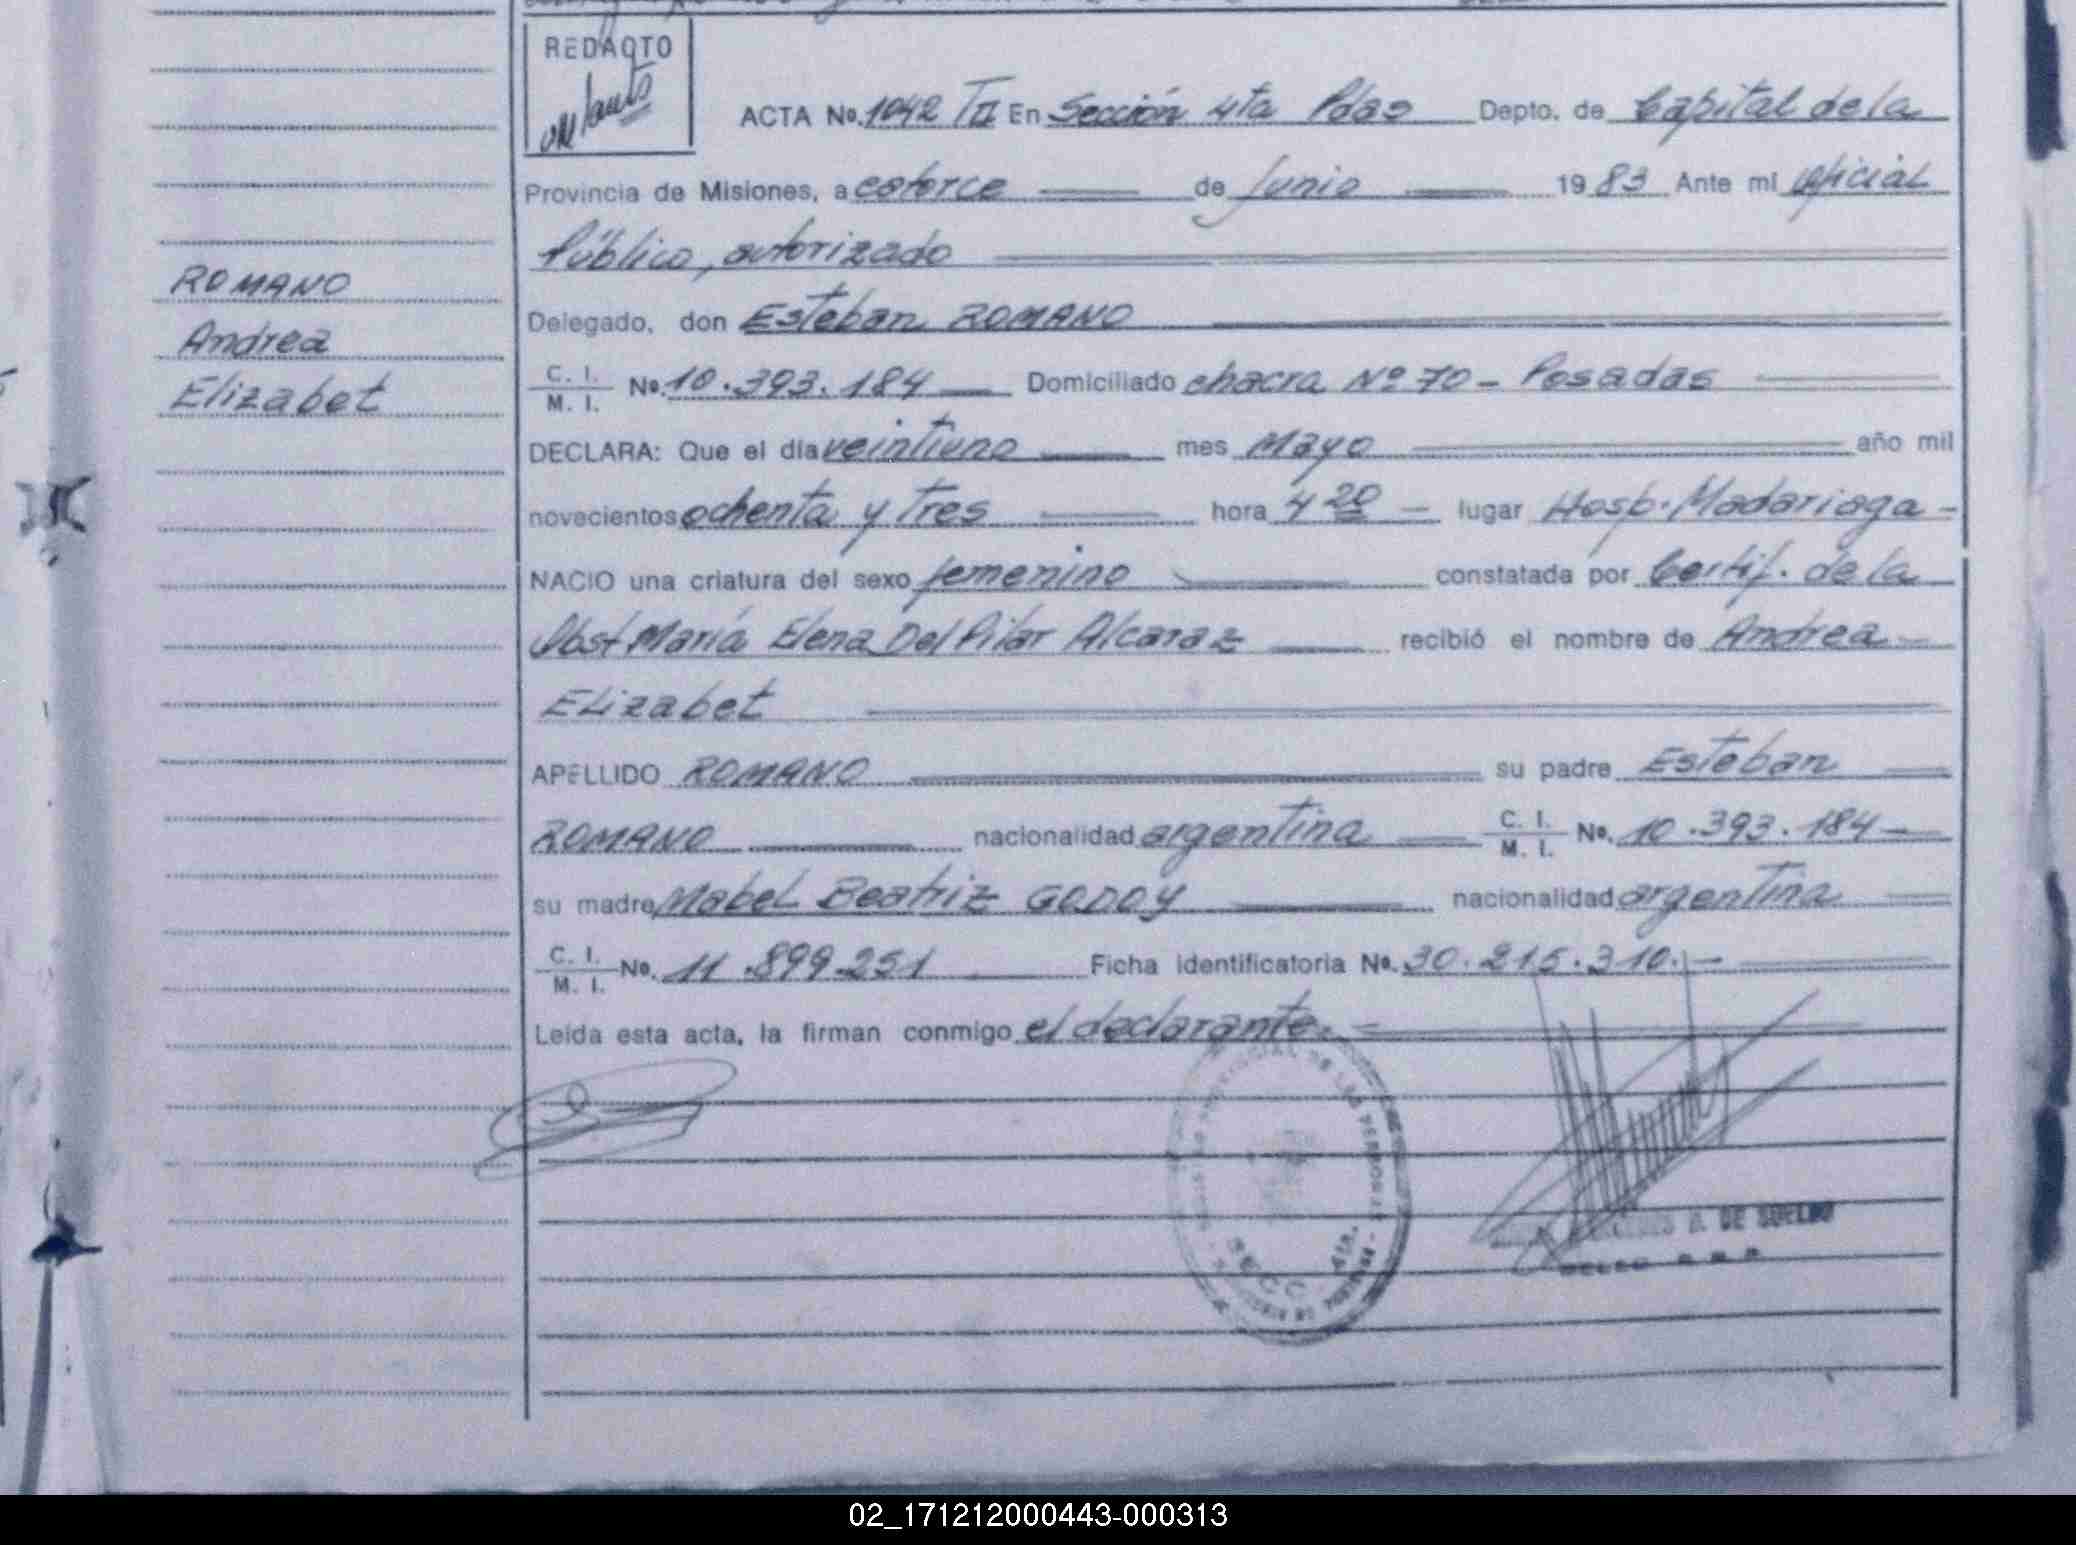 REDACTO
ACTA No. 1042 TII En Sección 4ta Pdas Depto. de Capital de la
Provincia de Misiones, a catorce de Junio 1983 Ante mi oficial
Público, autorizado
ROMANO
Delegado, don Esteban ROMANO
Andrea
C. I. M. I. No. 10.393.184 Domiciliado chacra Nº 70 - Posadas
Elizabet
DECLARA: Que el dia veintiuno mes Mayo año mil
novecientos ochenta y tres hora 4 20 - lugar Hosp. Madariaga -
NACIO una criatura del sexo femenino constatada por Certif. de la
Obst María Elena Del Pilar Alcaraz recibió el nombre de Andrea
Elizabet
APELLIDO ROMANO su padre Esteban
ROMANO nacionalidad argentina C. I. M. I. No. 10.393.184 -
su madre Mabel Beatriz GODOY nacionalidad argentina
C. I. M. I. No. 11.899.251 Ficha identificatoria No. 30.215.310.-
Leida esta acta, la firman conmigo el declarante.
DE LAS PERSONAS
SECC 4ta.
A. DE SUELDO
02_171212000443-000313